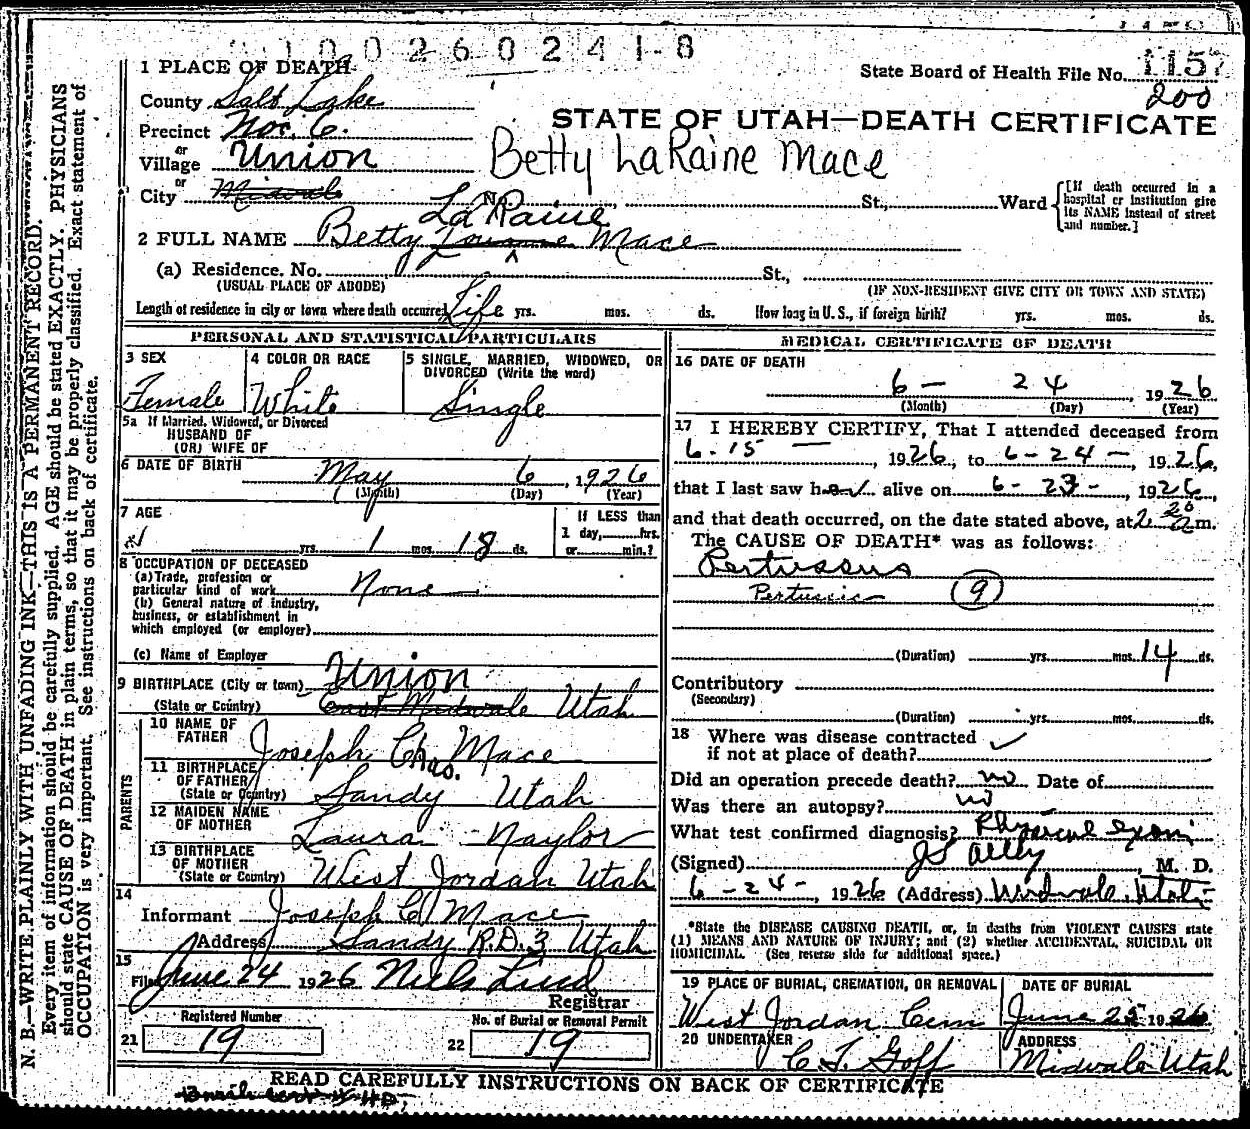 1002602418
1 PLACE OF DEATH
State Board of Health File No. 1157
200
County Salt Lake
STATE OF UTAH—DEATH CERTIFICATE
Precinct Nor. 6.
or
Village Union
Betty LaRaine Mace
or
City Midvale No. St., Ward
[If death occurred in a hospital or institution give its NAME instead of street and number.]
La Raine
2 FULL NAME Betty Mace
(a) Residence. No. St.,
(USUAL PLACE OF ABODE) (IF NON-RESIDENT GIVE CITY OR TOWN AND STATE)
Length of residence in city or town where death occurred Life yrs. mos. ds. How long in U. S., if foreign birth? yrs. mos. ds.
PERSONAL AND STATISTICAL PARTICULARS
3 SEX
Female
4 COLOR OR RACE
White
5 SINGLE, MARRIED, WIDOWED, OR DIVORCED (Write the word)
Single
5a If Married, Widowed, or Divorced
HUSBAND OF
(OR) WIFE OF
6 DATE OF BIRTH May 6, 1926
(Month) (Day) (Year)
7 AGE
yrs. 1 mos. 18 ds.
If LESS than
1 day, hrs.
or min.?
8 OCCUPATION OF DECEASED
(a) Trade, profession or
particular kind of work None
(b) General nature of industry,
business, or establishment in
which employed (or employer)
(c) Name of Employer
9 BIRTHPLACE (City or town) Union
(State or Country) East Midvale Utah
PARENTS
10 NAME OF
FATHER Joseph Chas. Mace
11 BIRTHPLACE
OF FATHER
(State or Country) Sandy Utah
12 MAIDEN NAME
OF MOTHER Laura Naylor
13 BIRTHPLACE
OF MOTHER
(State or Country) West Jordan Utah
14
Informant Joseph C Mace
Address Sandy R.D. 3 Utah
15
Filed June 24 1926 Niels Lind
Registrar
Registered Number
21 19
No. of Burial or Removal Permit
22 19
MEDICAL CERTIFICATE OF DEATH
16 DATE OF DEATH
6 - 24, 1926
(Month) (Day) (Year)
17 I HEREBY CERTIFY, That I attended deceased from
6-15, 1926, to 6-24-, 1926,
that I last saw her alive on 6-23-, 1926,
and that death occurred, on the date stated above, at 2 20 a m.
The CAUSE OF DEATH* was as follows:
Pertussus
Pertussis 9
(Duration) yrs. mos. 14 ds.
Contributory
(Secondary)
(Duration) yrs. mos. ds.
18 Where was disease contracted
if not at place of death?
Did an operation precede death? no Date of
Was there an autopsy? no
What test confirmed diagnosis? Physical exam
(Signed) M. D.
6-24-, 1926 (Address) Midvale, Utah
*State the DISEASE CAUSING DEATH, or, in deaths from VIOLENT CAUSES state
(1) MEANS AND NATURE OF INJURY; and (2) whether ACCIDENTAL, SUICIDAL OR
HOMICIDAL. (See reverse side for additional space.)
19 PLACE OF BURIAL, CREMATION, OR REMOVAL
West Jordan Cem
DATE OF BURIAL
June 25 1926
20 UNDERTAKER
C T Goff
ADDRESS
Midvale Utah
READ CAREFULLY INSTRUCTIONS ON BACK OF CERTIFICATE
N. B.—WRITE PLAINLY WITH UNFADING INK—THIS IS A PERMANENT RECORD.
Every item of information should be carefully supplied. AGE should be stated EXACTLY. PHYSICIANS
should state CAUSE OF DEATH in plain terms, so that it may be properly classified. Exact statement of
OCCUPATION is very important. See instructions on back of certificate.